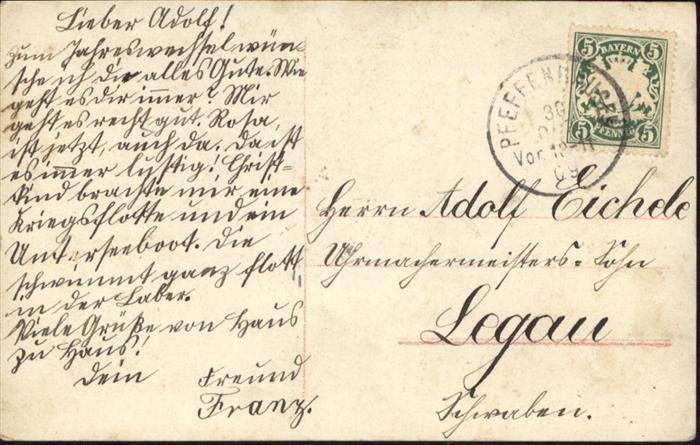 Lieber Adolf!
Zum Jahreswechsel wün-
sche ich dir alles Gute. Wie
geht es dir immer? Mir
geht es recht gut. Rosa,
ist jetzt, auch da. Da ist
es immer lustig! Christ-
kind brachte mir eine
Kriegsflotte und ein
Unterseeboot. Die
schwimmt ganz flott
in der Laber.
Viele Grüße von Haus
zu Haus!
Dein Freund
Franz.
5 BAYERN 5
5 PFENNIG 5
PFEFFENHAUSEN
30
Vor. 10-11
09
Herrn Adolf Eichele
Uhrmachermeisters-Sohn
Legau
Schwaben.